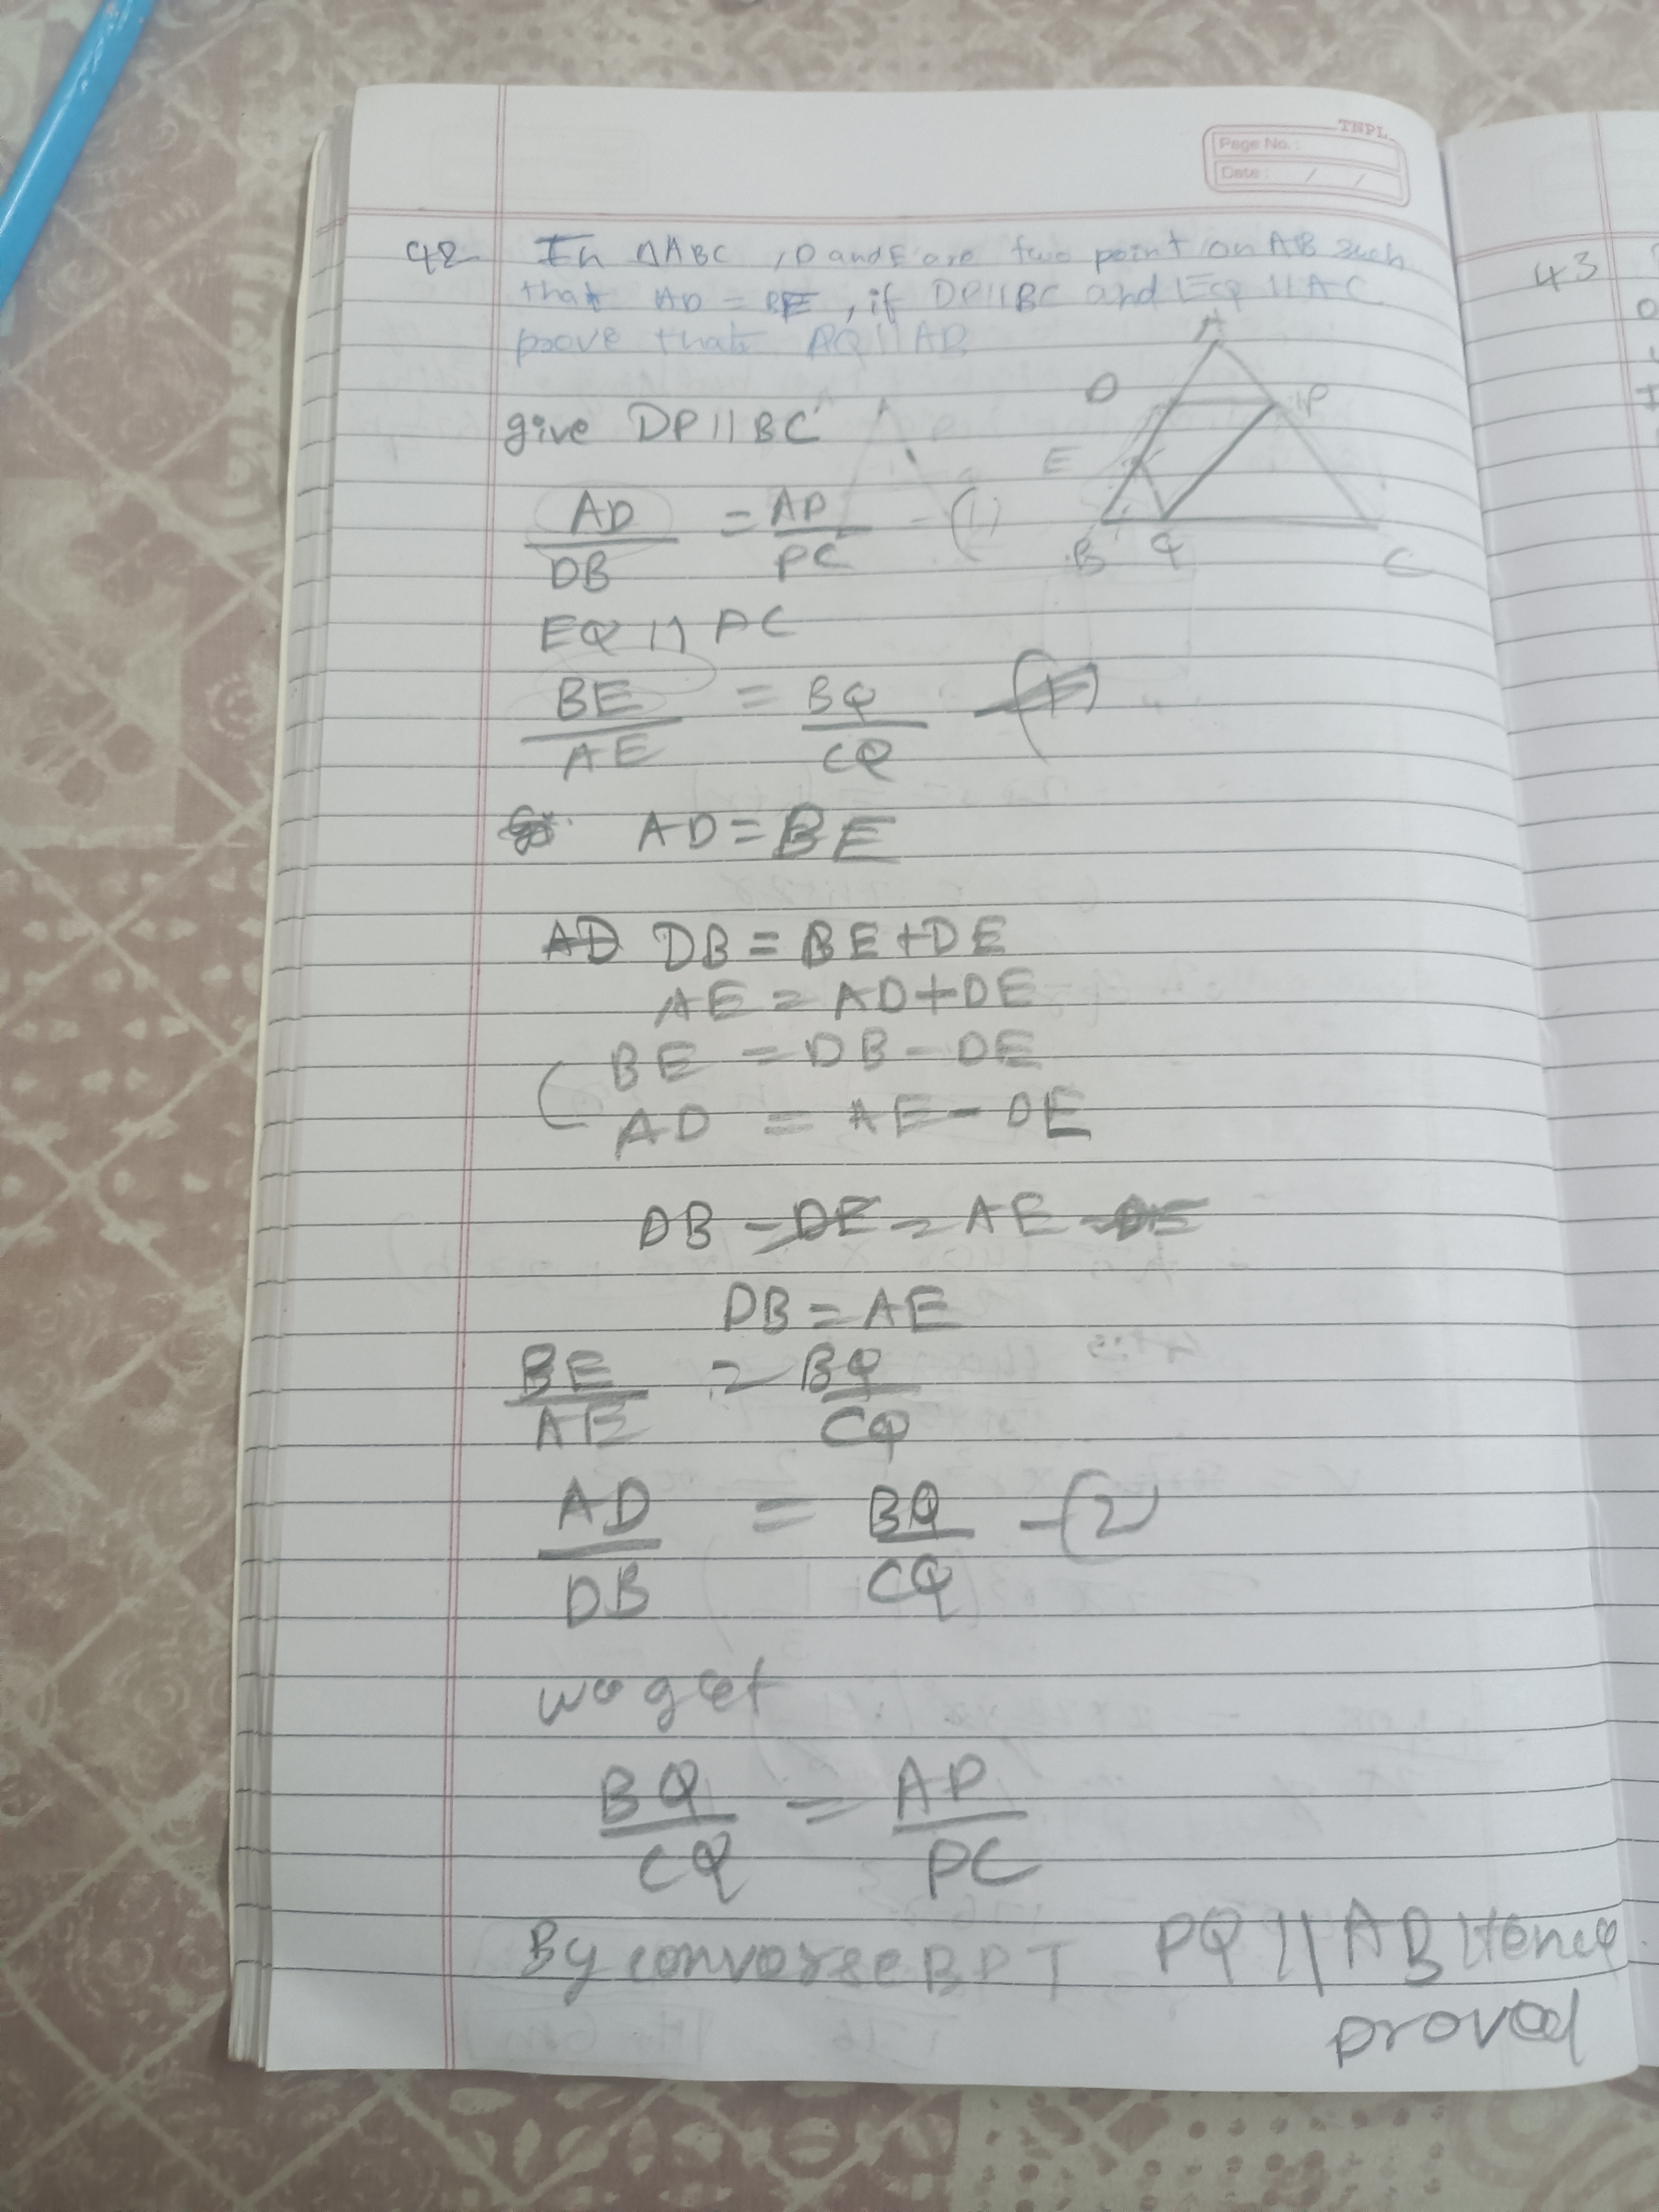 TNPL
Page No.:
Date: / /
42 In ΔABC, D and E are two point on AB such
that AD = BE, if DP || BC and EQ || AC
prove that PQ || AB
A
D P
E
B Q C
give DP || BC
AD = AP - (1)
DB PC
EQ || AC
BE = BQ
AE CQ
AD = BE
AD DB = BE + DE
AE = AD + DE
BE = DB - DE
AD = AE - DE
DB - DE = AE - DE
DB = AE
BE = BQ
AE CQ
AD = BQ - (2)
DB CQ
we get
BQ = AP
CQ PC
By converse BPT PQ || AB Hence
proved
43